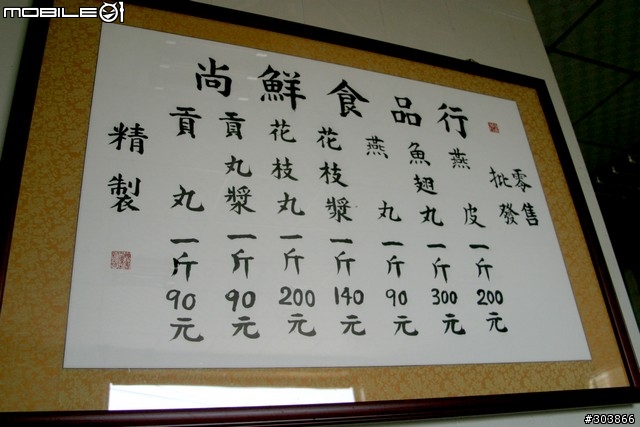 MOBILE01
尚鮮食品行
批發
零售
燕皮一斤200元
魚翅丸一斤300元
燕丸一斤90元
花枝漿一斤140元
花枝丸一斤200元
貢丸漿一斤90元
貢丸一斤90元
精製
#303866